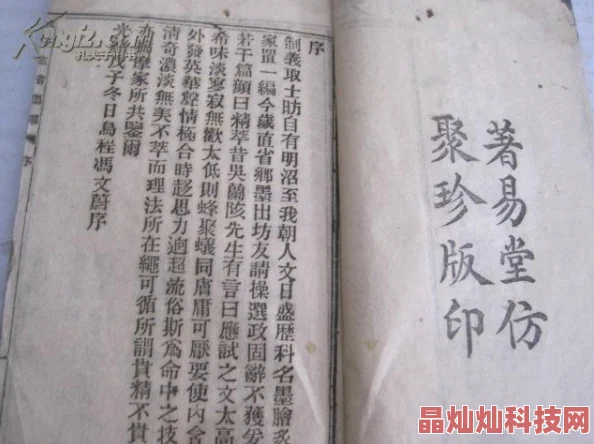 著易堂仿
聚珍版印
序
制義取士昉自有明沼至我朝人文日盛歷科名墨膾炙
家置一編今歲直省鄉墨出坊友請操選政固辭不獲爰
若干篇顏曰精萃昔吳蘭陔先生有言曰應試之文太高
希味淡寥寂無歡太低則蜂聚蟻同膚庸可厭要使內含
外發英華聲情極合時趨思力適超流俗斯為命中之技
清奇濃淡無美不萃而理法所在繩可循所謂貴精不貴
摩家所共鑒爾
戊子冬日烏程馮文蔚序
序
Kongfz.com
孔夫子旧书网
晶灿灿科技网